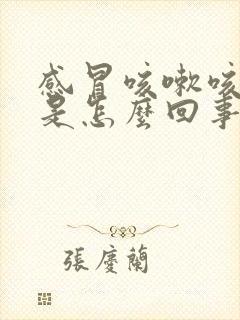 感冒咳嗽咳
是怎麼回事
張慶蘭